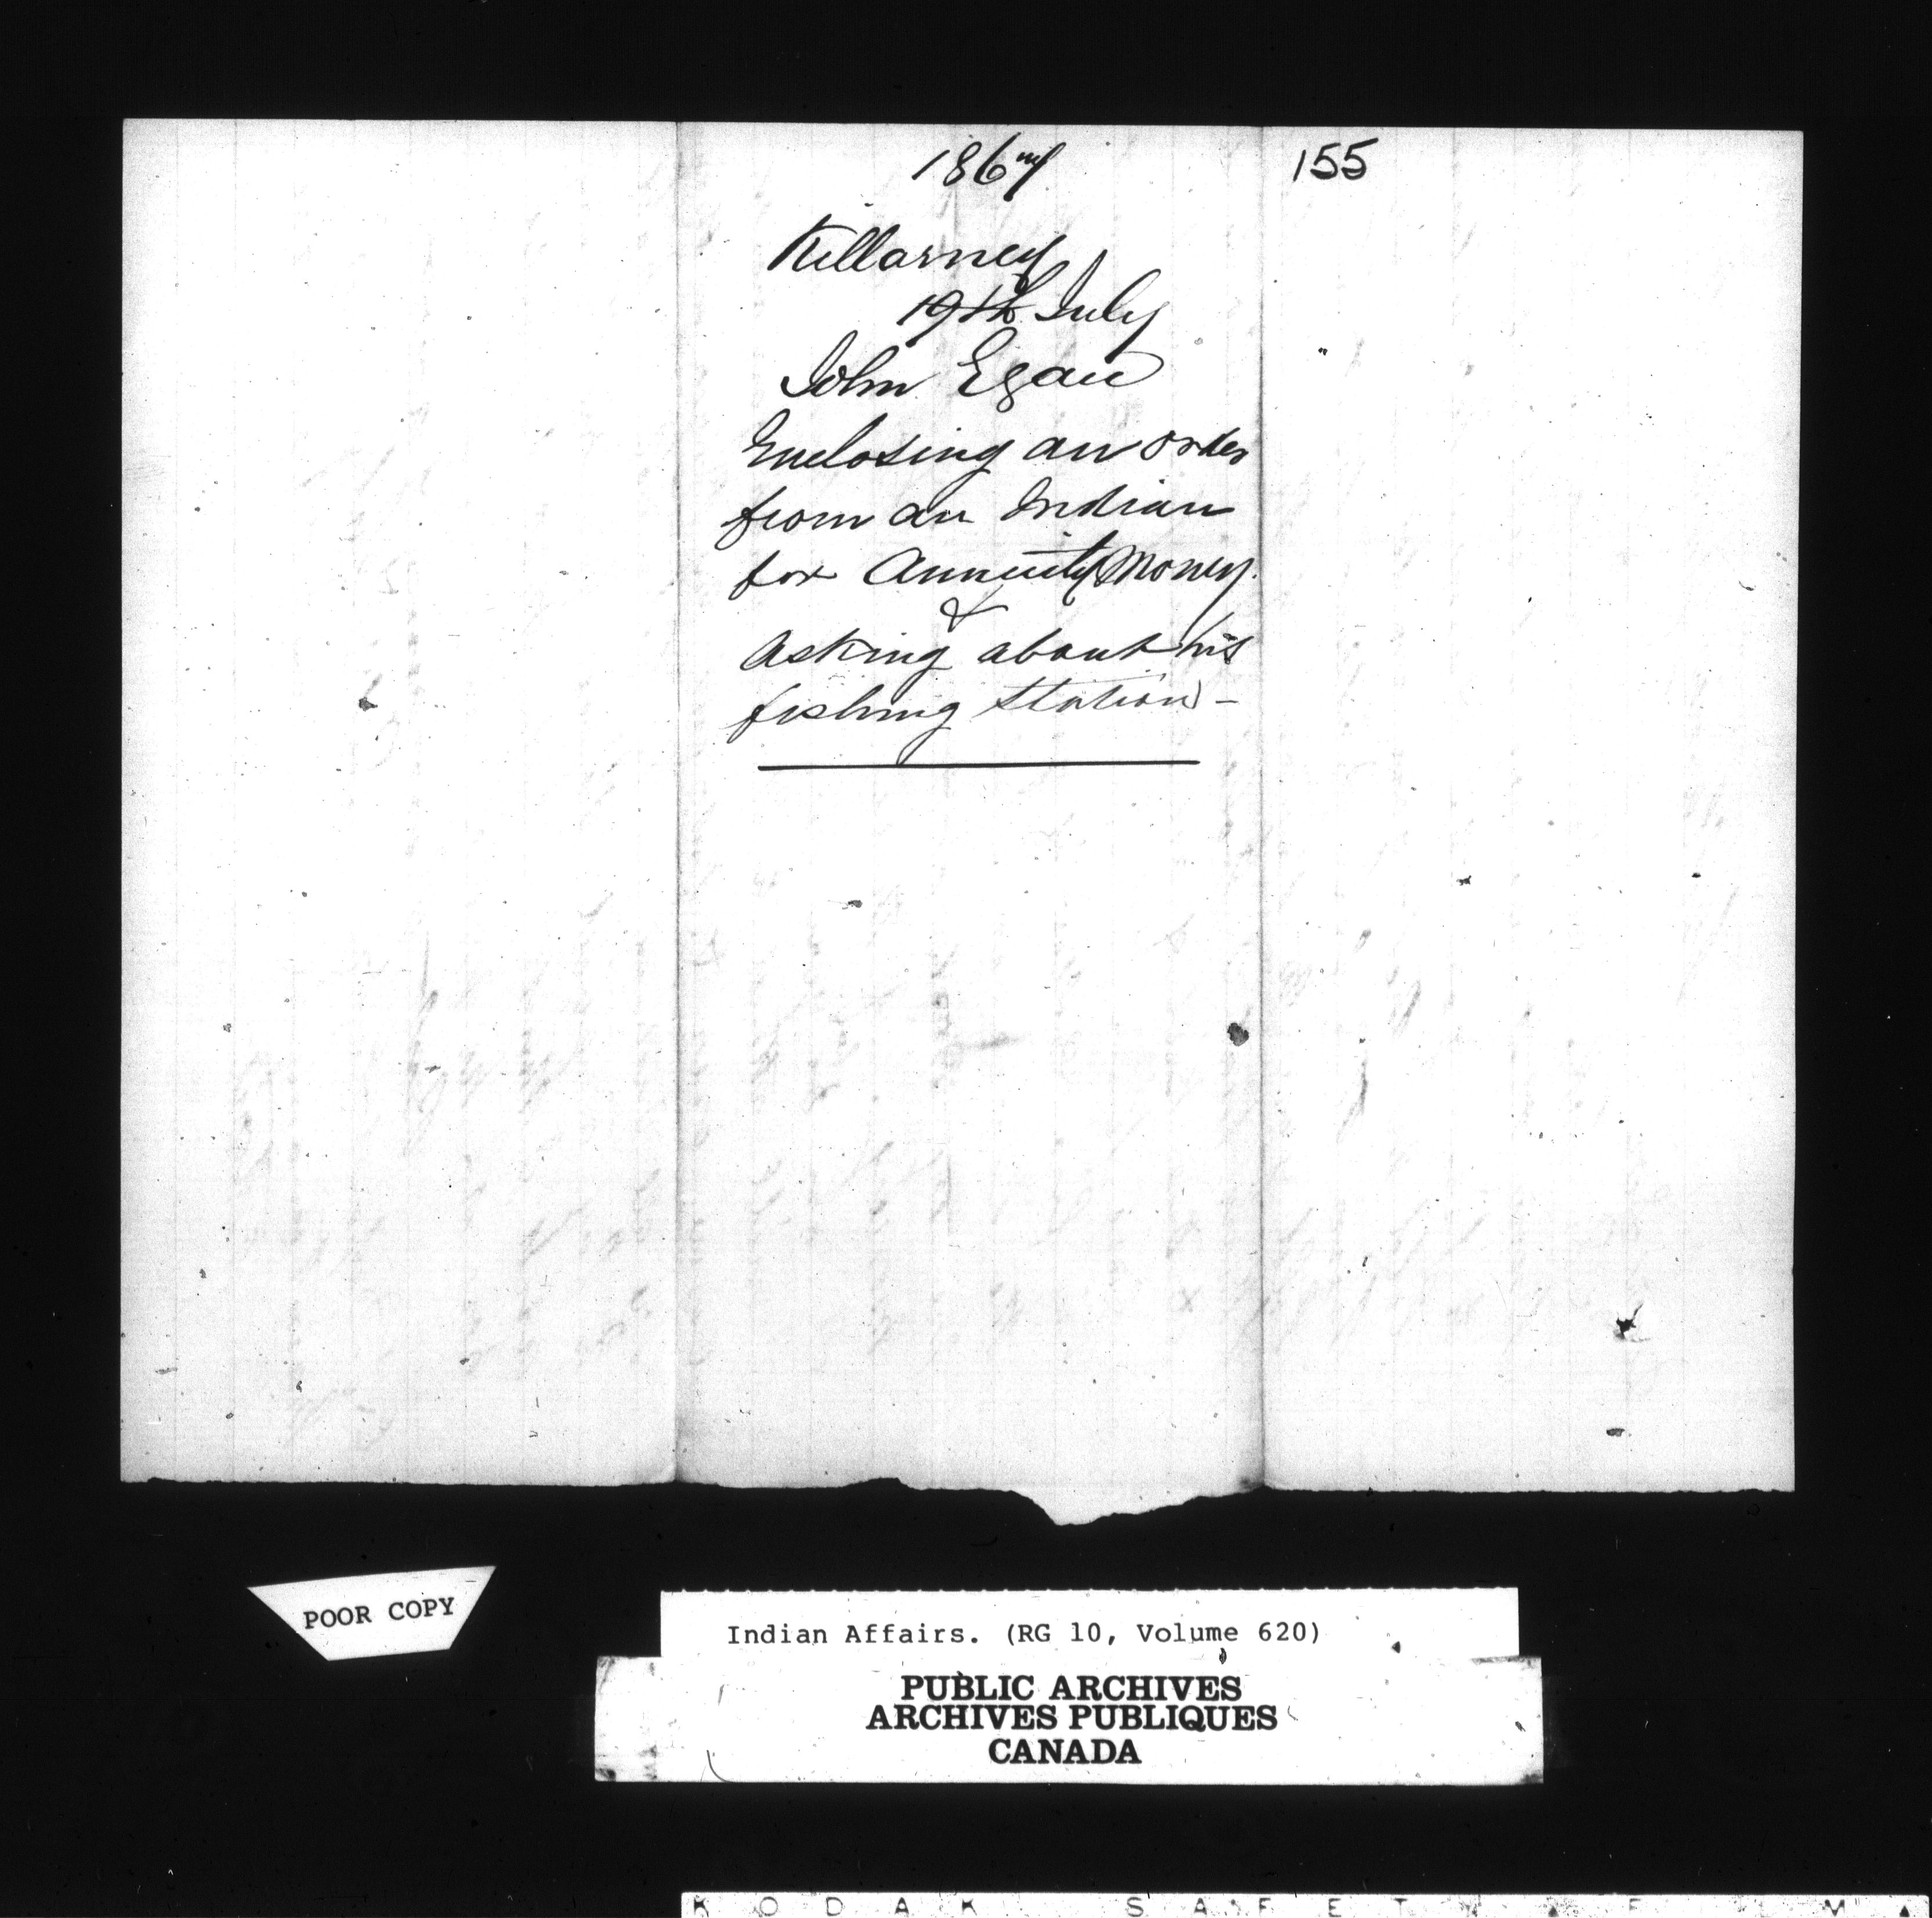 1867
155
Killarney
19th July
John Egan
Enclosing an order
from an Indian
for Annuity Money.
&
asking about his
fishing station -
POOR COPY
Indian Affairs. (RG 10, Volume 620)
PUBLIC ARCHIVES
ARCHIVES PUBLIQUES
CANADA
KODAK SAFETY FILM